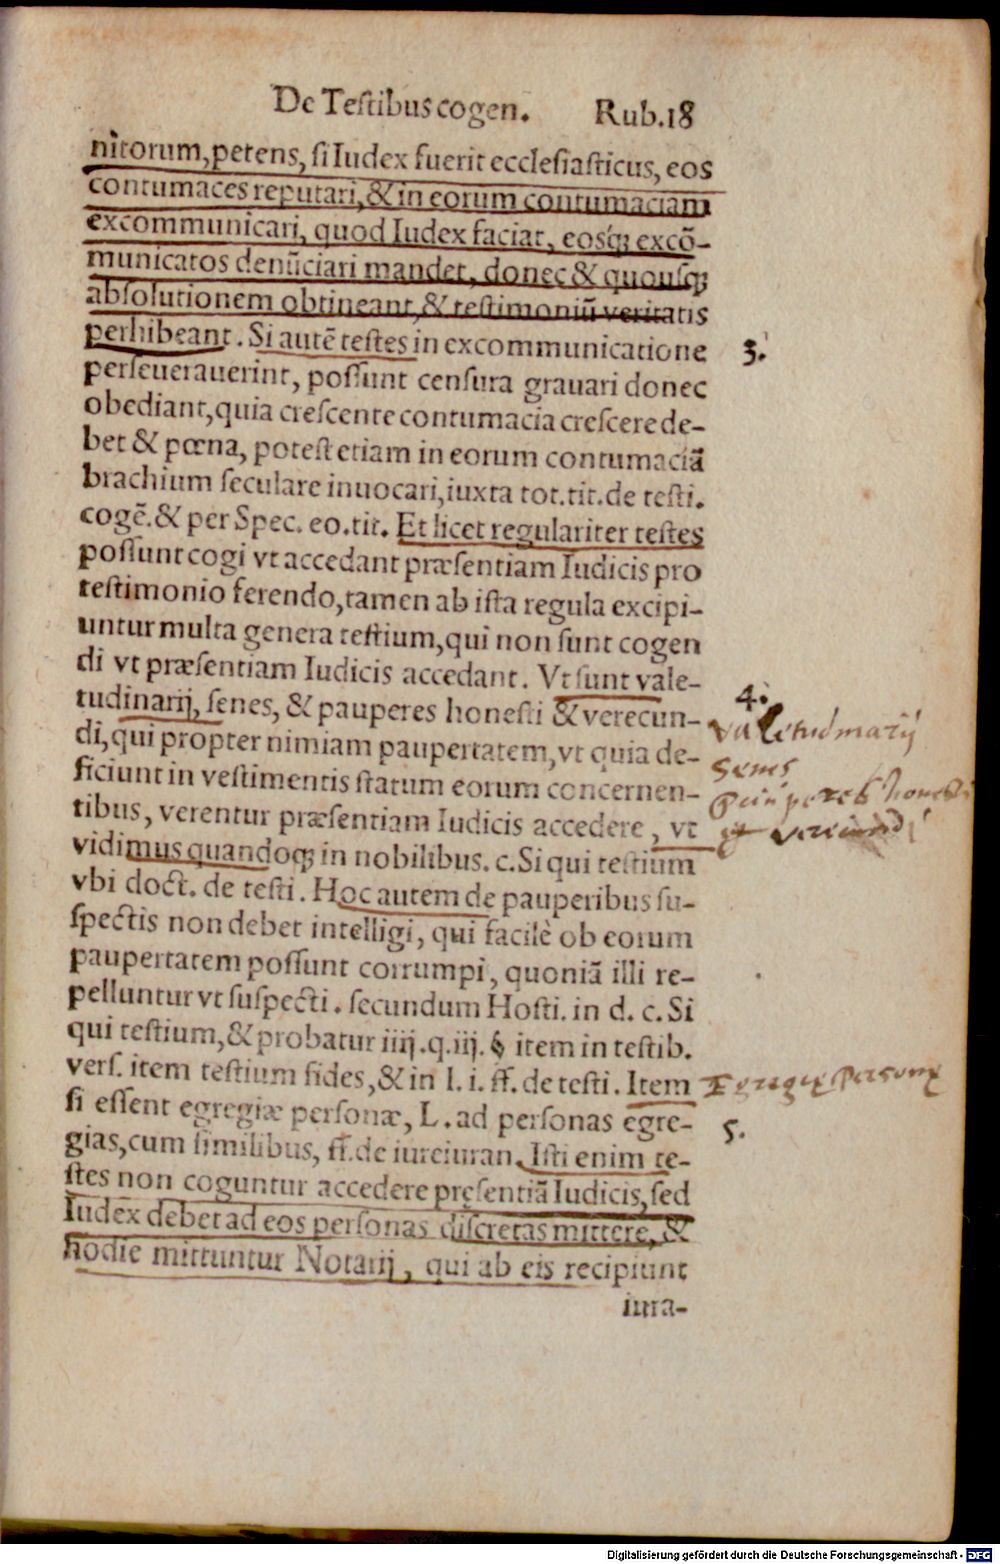 De Testibus cogen. Rub.18
nitorum,petens, si Iudex fuerit ecclesiasticus, eos
contumaces reputari,& in eorum contumaciam
excommunicari, quod Iudex faciat, eosq́; excõ-
municatos denũciari mandet, donec & quousq;
absolutionem obtineant,& testimoniũ veritatis
perhibeant. Si autẽ testes in excommunicatione
3.
perseuerauerint, possunt censura grauari donec
obediant,quia crescente contumacia crescere de-
bet & pœna, potest etiam in eorum contumaciã
brachium seculare inuocari,iuxta tot.tit.de testi.
cogẽ.& per Spec. eo.tit. Et licet regulariter testes
possunt cogi vt accedant præsentiam Iudicis pro
testimonio ferendo,tamen ab ista regula excipi-
untur multa genera testium,qui non sunt cogen
di vt præsentiam Iudicis accedant. Vt sunt vale-
4.
tudinarij, senes, & pauperes honesti & verecun-
valetudinarij
di,qui propter nimiam paupertatem,vt quia de-
senes
ficiunt in vestimentis statum eorum concernen-
pauperes honesti
tibus, verentur præsentiam Iudicis accedere, vt
et verecundi
vidimus quandoq; in nobilibus. c.Si qui testium
vbi doct. de testi. Hoc autem de pauperibus su-
spectis non debet intelligi, qui facilè ob eorum
paupertatem possunt corrumpi, quoniã illi re-
pelluntur vt suspecti. secundum Hosti. in d. c. Si
qui testium,& probatur iiij.q.iij. § item in testib.
vers. item testium fides,& in l. i. ff. de testi. Item
Egregię personę
si essent egregiæ personæ, L. ad personas egre-
5.
gias,cum similibus, ff.de iureiuran. Isti enim te-
stes non coguntur accedere pręsentiã Iudicis, sed
Iudex debet ad eos personas discretas mittere, &
hodie mittuntur Notarij, qui ab eis recipiunt
iura-
Digitalisierung gefördert durch die Deutsche Forschungsgemeinschaft - DFG